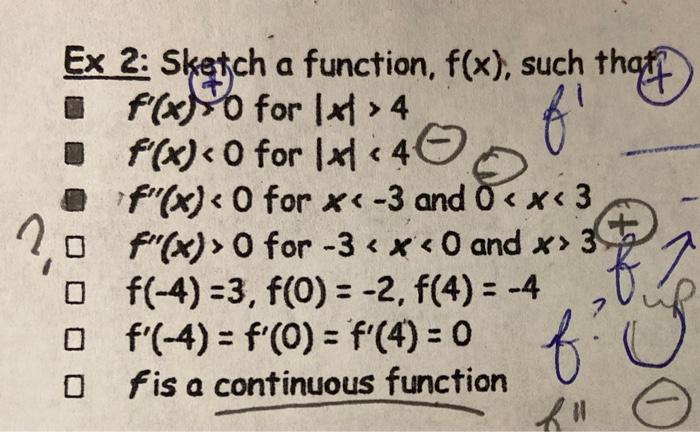 Ex 2: Sketch a function, f(x), such that
+ +
f'(x) > 0 for |x| > 4
f'
f'(x) < 0 for |x| < 4 −
−
f"(x) < 0 for x < -3 and 0 < x < 3
+
?, f"(x) > 0 for -3 < x < 0 and x > 3
f(-4) =3, f(0) = -2, f(4) = -4
up
f'(-4) = f'(0) = f'(4) = 0
f is a continuous function
f" −